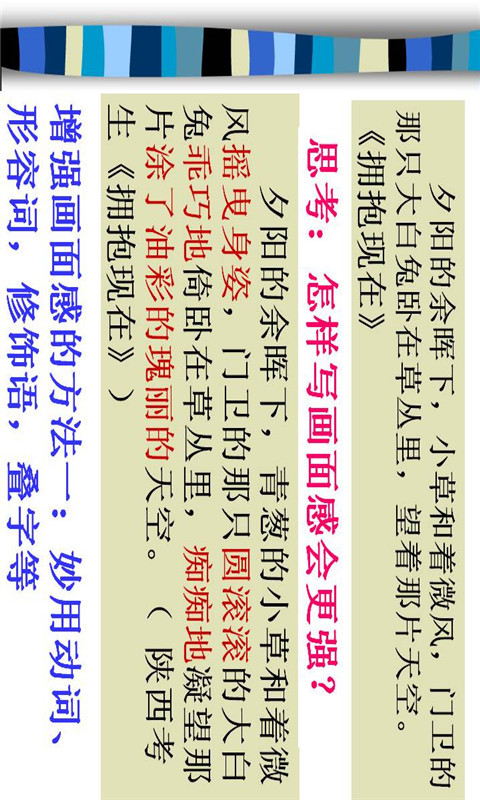 夕阳的余晖下，小草和着微风，门卫的
那只大白兔卧在草丛里，望着那片天空。
《拥抱现在》
思考：怎样写画面感会更强？
夕阳的余晖下，青葱的小草和着微
风摇曳身姿，门卫的那只圆滚滚的大白
兔乖巧地倚卧在草丛里，痴痴地凝望那
片涂了油彩的瑰丽的天空。（陕西考
生《拥抱现在》）
增强画面感的方法一：妙用动词、
形容词，修饰语，叠字等